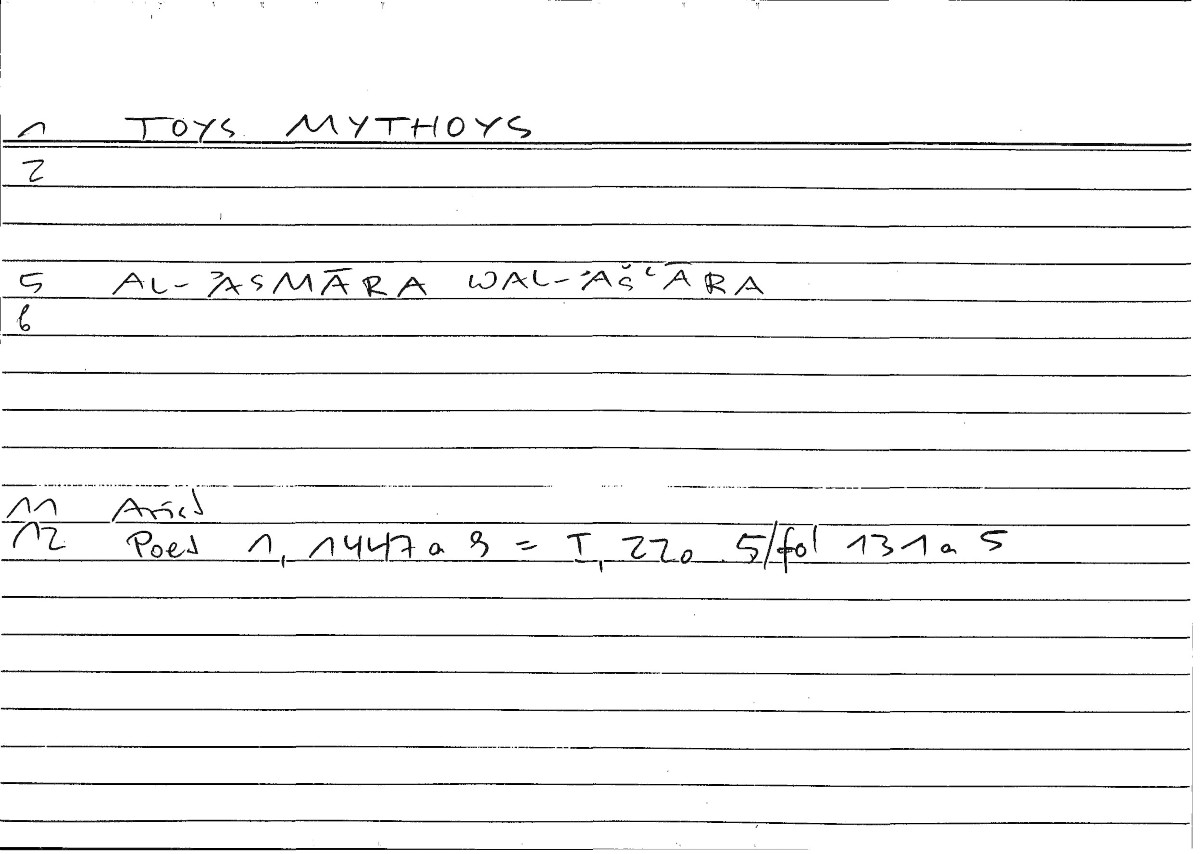 1 TOYS MYTHOYS
2
5 AL-ʾASMĀRA WAL-ʾAŠʿĀRA
6
11 Arist
12 Poet 1, 1447a 9 = I, 220 5/fol 131a 5